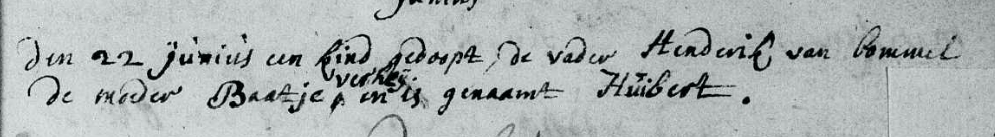 Junius
Den 22 junius een kind gedoopt, de vader Henderik van bommel
verheij
de moeder Baatje en is genaamt Huibert.